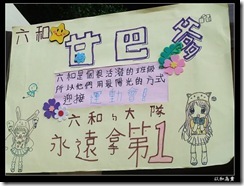 六和
甘巴爹
六和是個很活潑的班級
所以他們用最陽光的方式
迎接 運動會!
六和ㄉ大隊
永遠拿第1